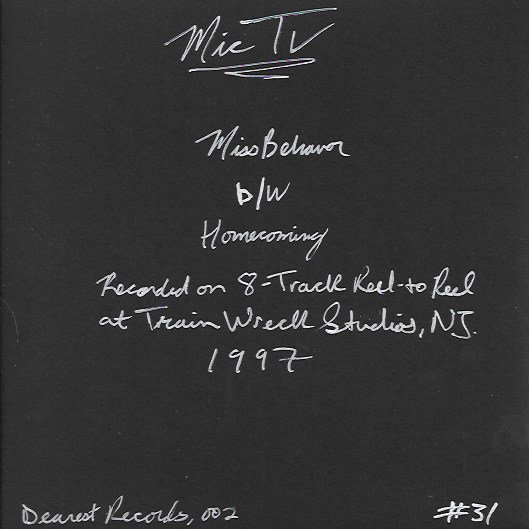 Mic TV
Miss Behavor
b/w
Homecoming
Recorded on 8-Track Reel-to Reel
at Train Wreck Studios, NJ.
1997
Dearest Records, 002
#31